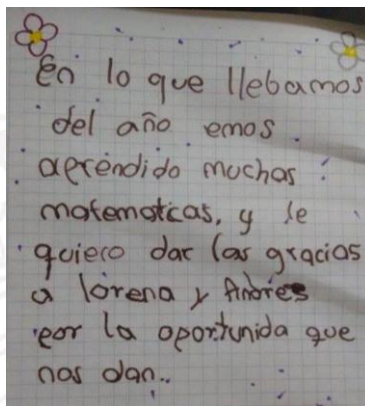 En lo que llebamos
del año emos
aprendido muchas
matematicas, y le
quiero dar las gracias
a lorena y Andres
por la oportunida que
nos dan..